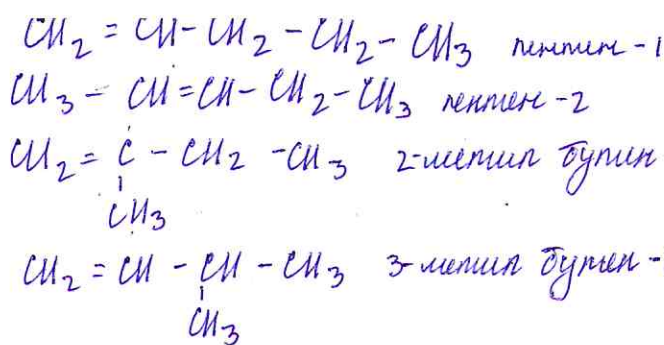 CH2 = CH - CH2 - CH2 - CH3 пентен - 1
CH3 - CH = CH - CH2 - CH3 пентен - 2
CH2 = C - CH2 - CH3 2-метил бутин
CH3
CH2 = CH - CH - CH3 3-метил бутен -
CH3